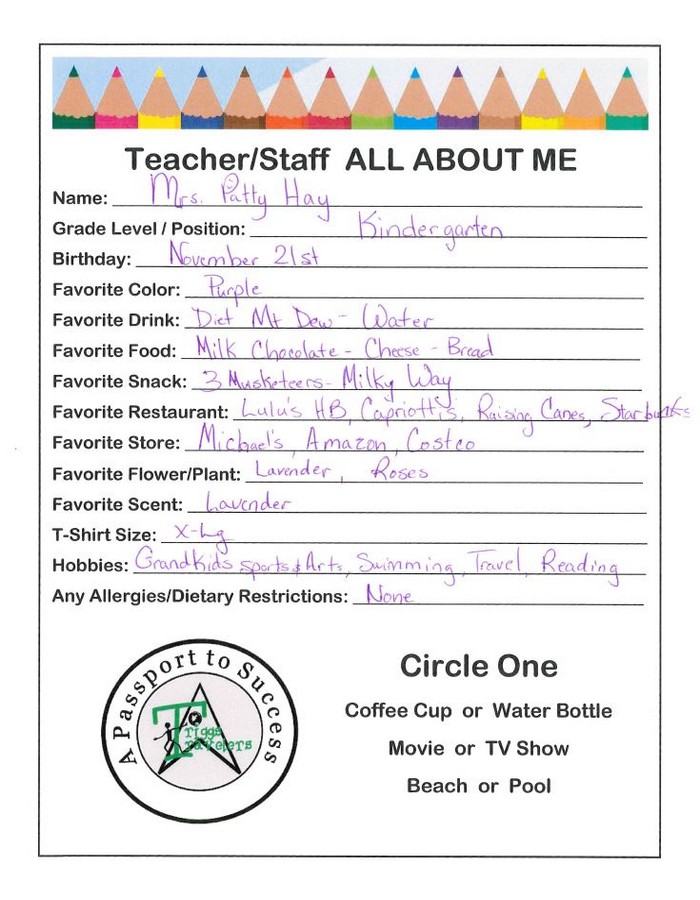 Teacher/Staff ALL ABOUT ME
Name: Mrs. Patty Hay
Grade Level / Position: Kindergarten
Birthday: November 21st
Favorite Color: Purple
Favorite Drink: Diet Mt Dew - Water
Favorite Food: Milk Chocolate - Cheese - Bread
Favorite Snack: 3 Musketeers - Milky Way
Favorite Restaurant: Lulu's HB, Capriotti's, Raising Canes, Starbucks
Favorite Store: Michael's, Amazon, Costco
Favorite Flower/Plant: Lavender, Roses
Favorite Scent: Lavender
T-Shirt Size: X-Lg
Hobbies: Grandkids sports & Arts, Swimming, Travel, Reading
Any Allergies/Dietary Restrictions: None
A Passport to Success
Triggs
Trailblazers
Circle One
Coffee Cup or Water Bottle
Movie or TV Show
Beach or Pool